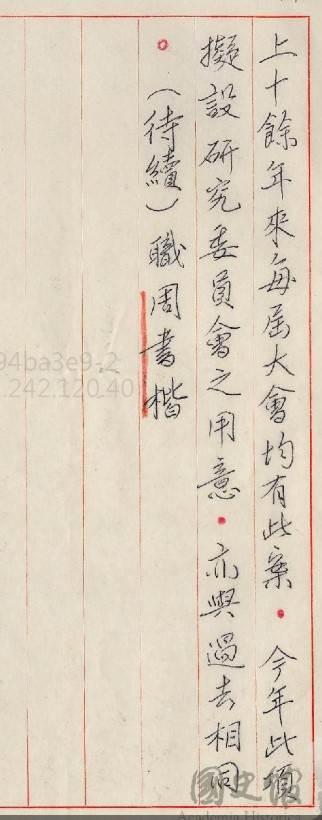 上十餘年來每屆大會均有此案。今年此項
擬設研究委員會之用意。亦與過去相同
。(待續)職周書楷
94ba3e9-2
.242.120.40
國史館
Academia Historica